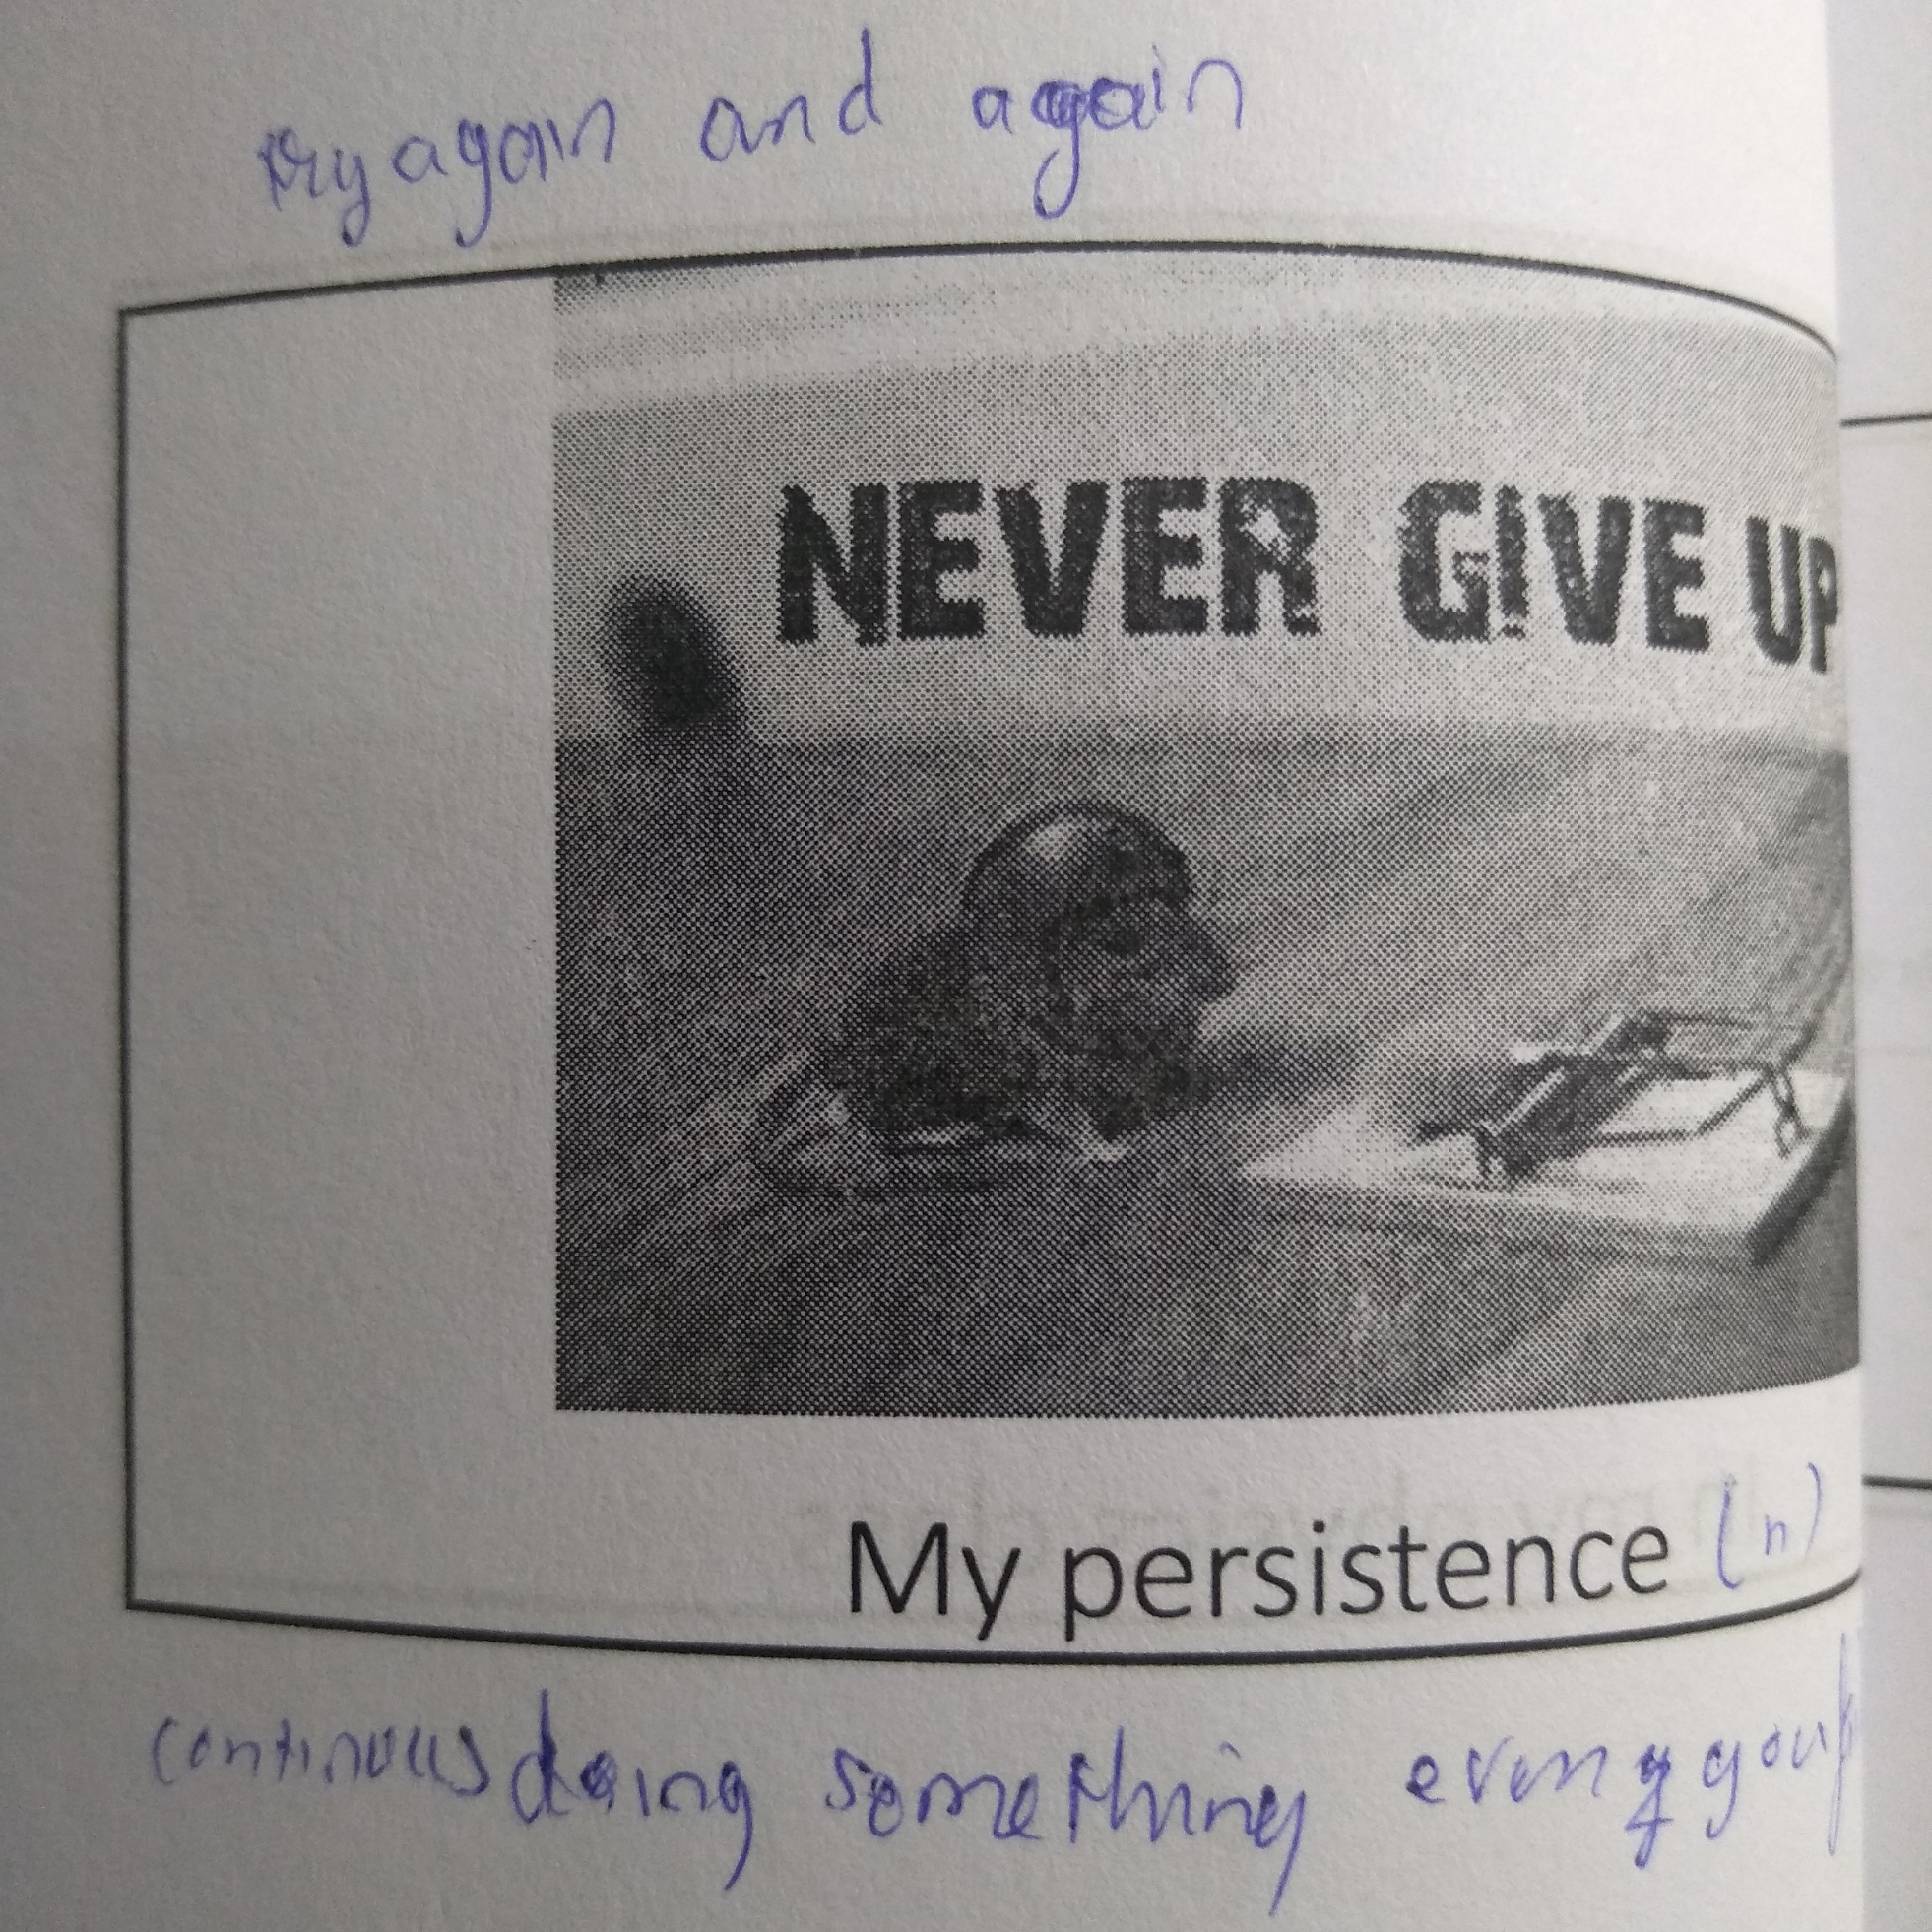 try again and again
NEVER GIVE UP
My persistence (n)
continuous doing something even